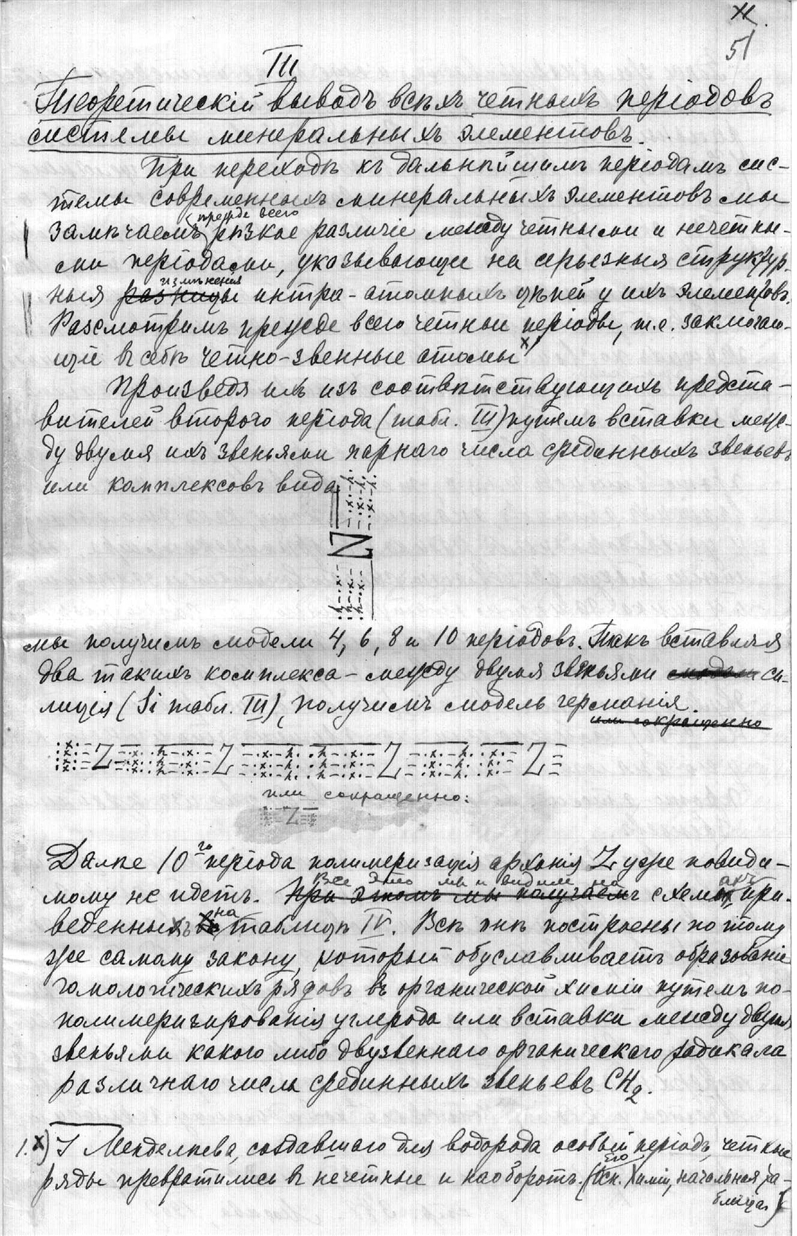 51
III
Теоретическій выводъ всѣхъ четныхъ періодовъ
системы минеральныхъ элементовъ.
При переходѣ къ дальнѣйшимъ періодамъ сис-
темы современныхъ минеральныхъ элементовъ мы
прежде всего
замѣчаемъ рѣзкое различіе между четными и нечетны-
ми періодами, указывающіе на серьезныя структур-
измѣненія
ныя разницы интра-атомныхъ цѣпей у ихъ элементовъ.
Разсмотримъ прежде всего четные періоды, т.е. заключаю-
щіе въ себѣ четно-звенные атомы x)
Произведя ихъ изъ соотвѣтствующихъ предста-
вителей второго періода (табл. III) путемъ вставки меж-
ду двумя ихъ звеньями парнаго числа срединныхъ звеньевъ
или комплексовъ вида
Z
мы получимъ модели 4, 6, 8 и 10 періодовъ. Такъ вставляя
два такихъ комплекса – между двумя звеньями си-
лиція (Si табл. III), получимъ модель германія.
или сокращенно
Z Z Z Z
или сокращенно:
Z
Далѣе 10го періода полимеризація архонія Z уже повиди-
Все это мы и видимъ на ахъ
мому не идетъ. При этомъ мы получаемъ схемы, при-
на
веденныхъ таблицѣ IV. Всѣ онѣ построены по тому
же самому закону, который обуславливаетъ образованіе
гомологическихъ рядовъ въ органической химіи путемъ по-
полимеризированія углерода или вставки между двумя
звеньями какого либо двузвеннаго органическаго радикала
различнаго числа срединныхъ звеньевъ CH2.
1. x) У Менделѣева, создавшаго для водорода особый періодъ, четные
его
ряды превратились въ нечетные и наоборотъ. (Осн. Химіи, начальная та-
блица)